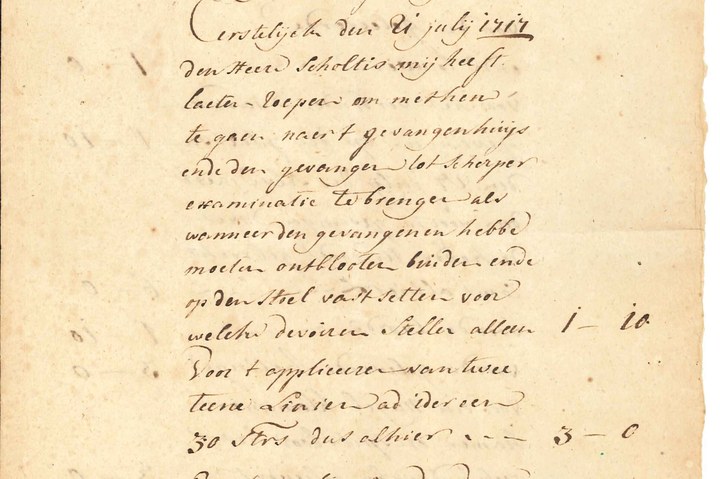 Eerstelijck den 21 julij 1717
den Heere Scholtis mij heeft
laeten roepen om met hem
te gaen naer t gevangenhuijs
ende den gevangen tot scherper
examinatie te brengen als
wanneer den gevangenen hebbe
moeten ontblooten binden ende
op den stoel vast setten voor
welcke devoiren stelle alleen 1 - 10
Voor t appliceeren van twee
teene ad ider een
30 Strs dus alhier --- 3 - 0